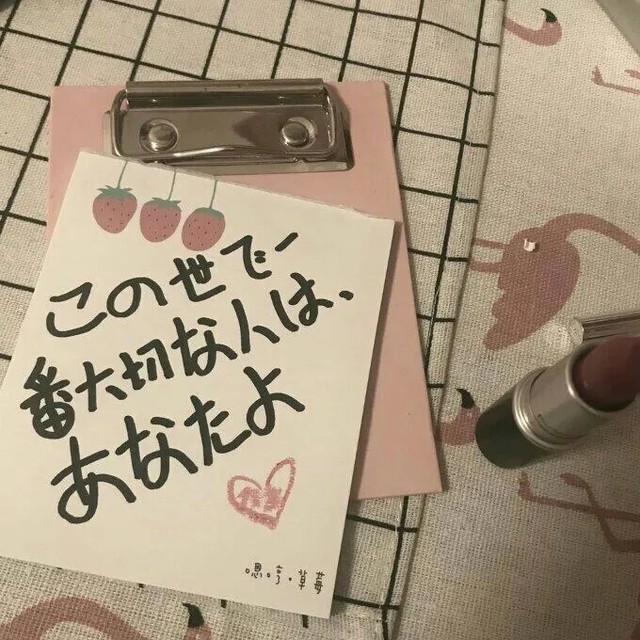 この世で一
番大切な人は、
あなたよ
嗯。亏·草莓